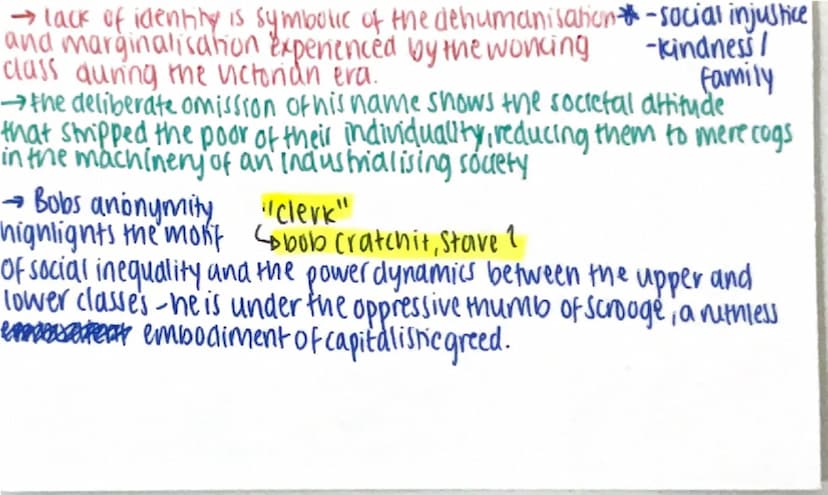 → lack of identity is symbolic of the dehumanisation * - social injustice
and marginalisation experienced by the working - kindness /
class during the victorian era. family
→ the deliberate omission of his name shows the societal attitude
that stripped the poor of their individuality, reducing them to mere cogs
in the machinery of an industrialising society
→ Bobs anonymity "clerk"
highlights the motif ↳ bob cratchit, stave 1
of social inequality and the power dynamics between the upper and
lower classes - he is under the oppressive thumb of scrooge, a ruthless
embodiment of capitalistic greed.